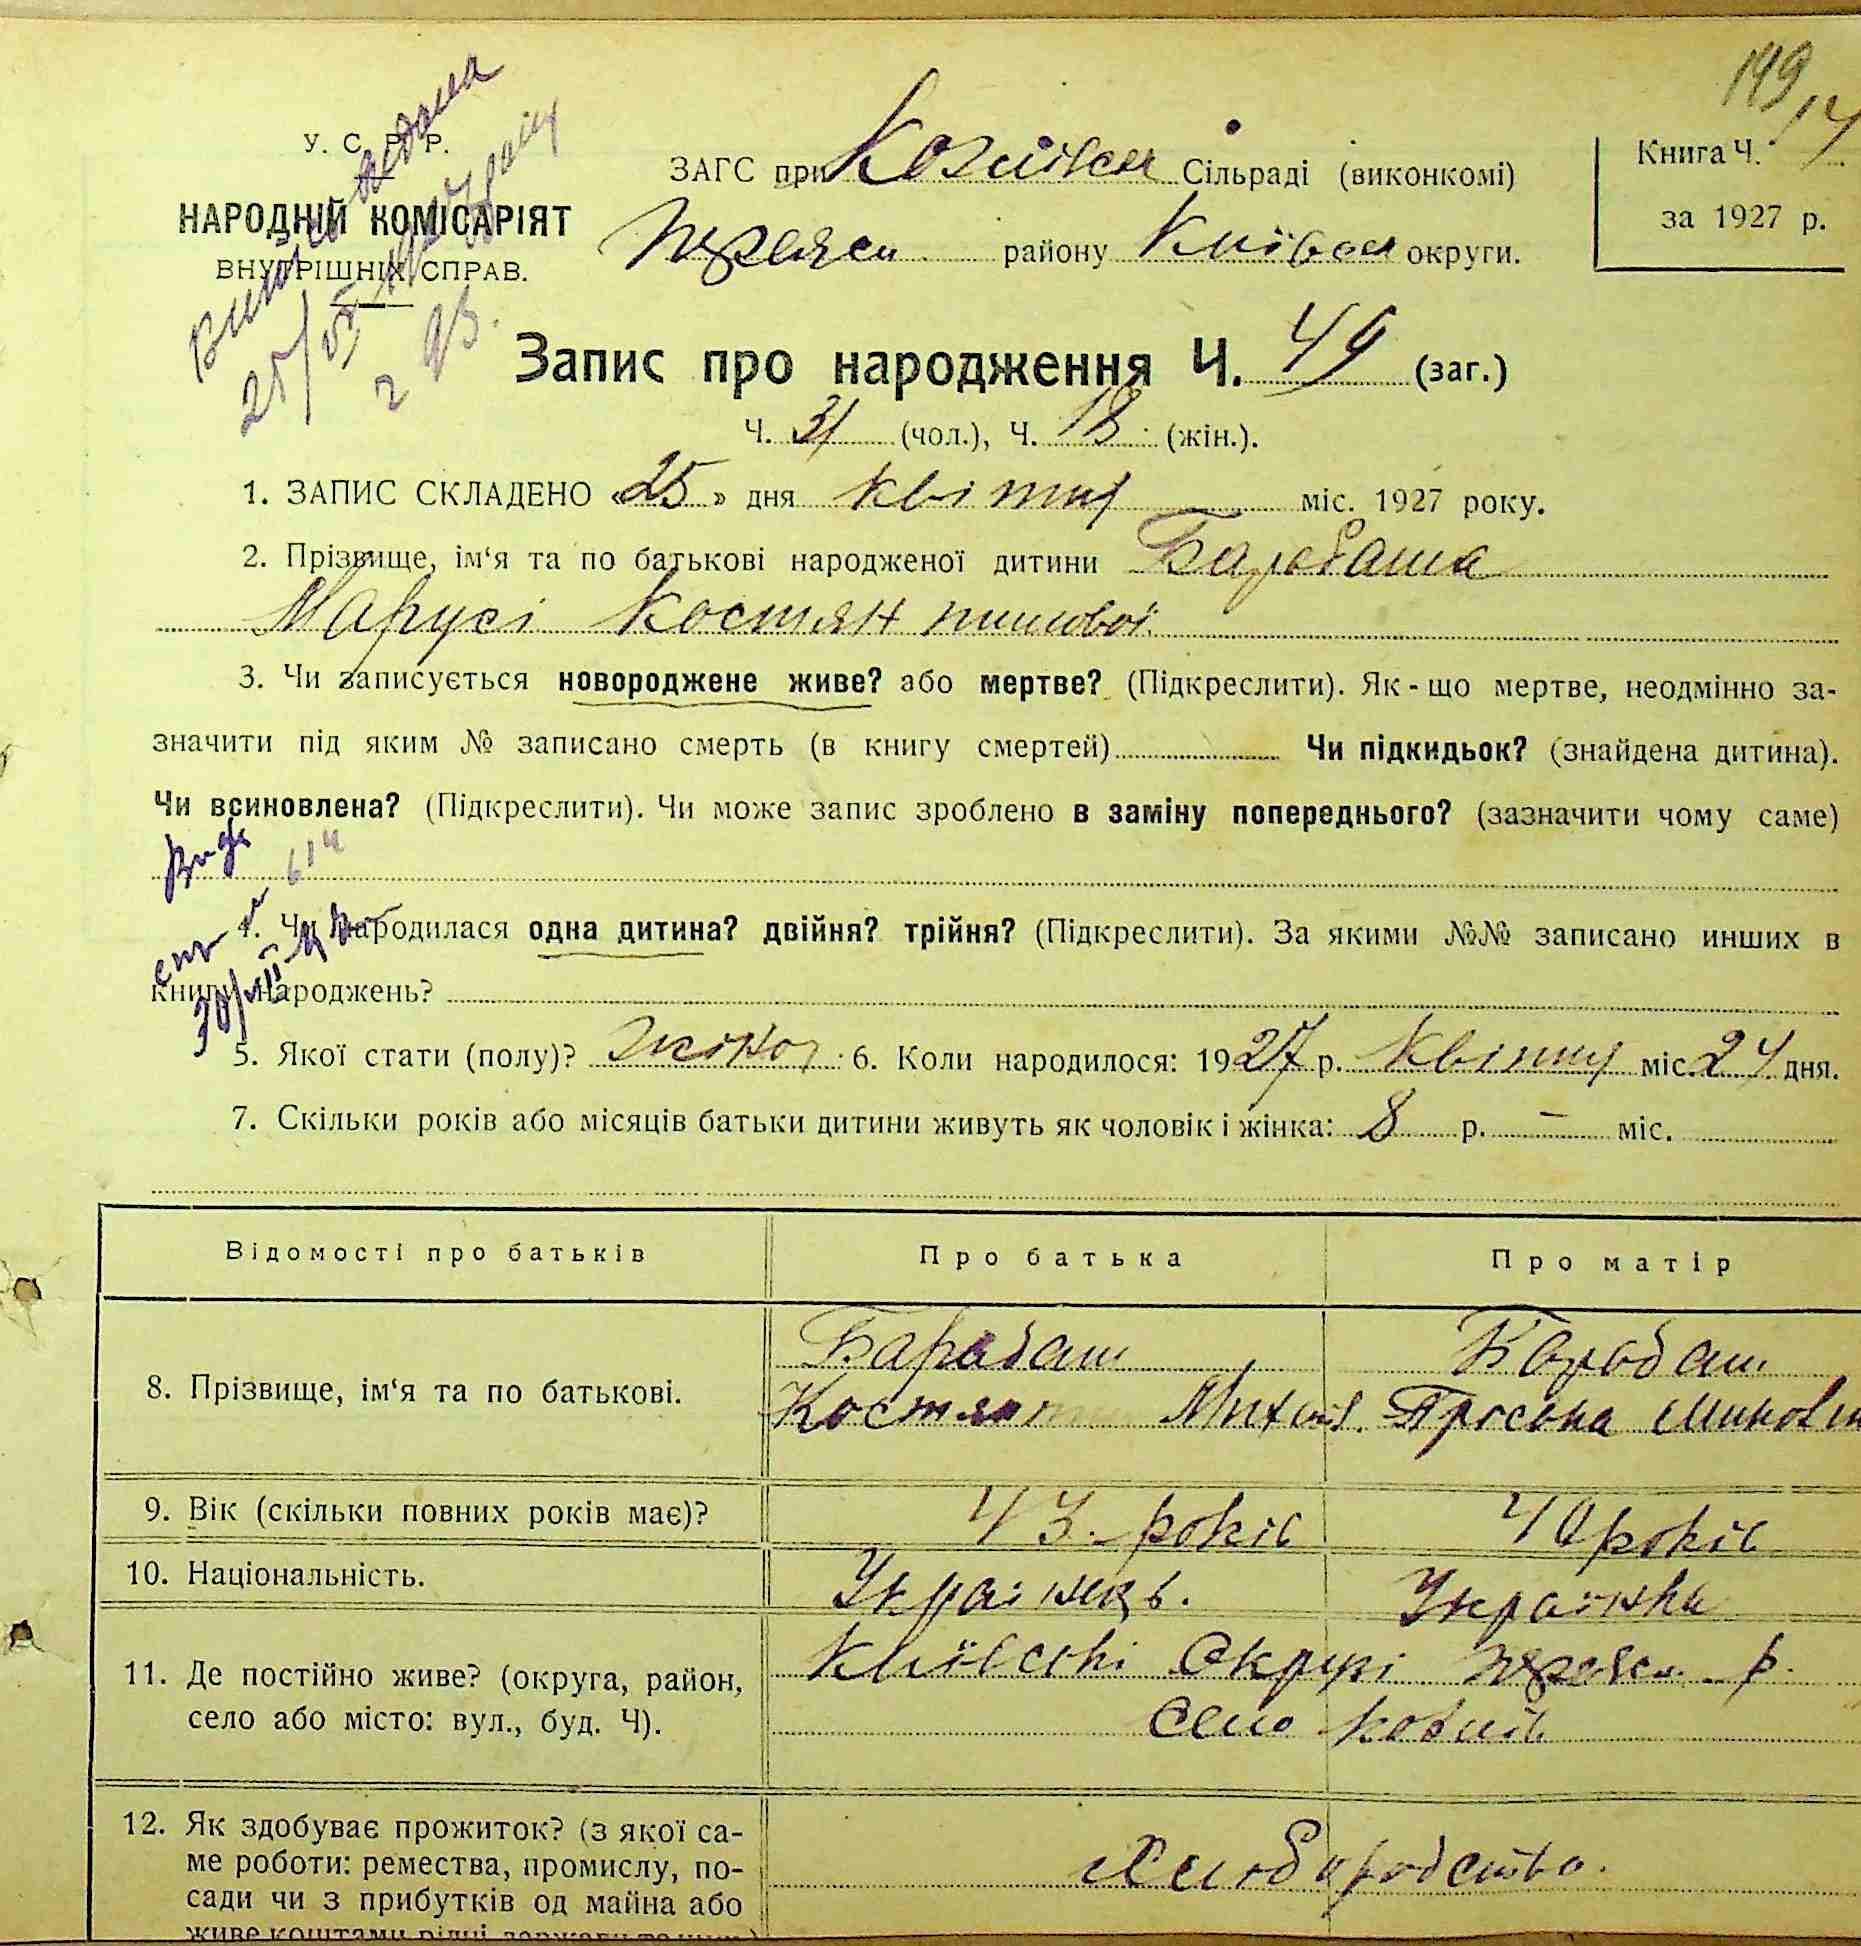 149
У. С. Р. Р.
НАРОДНІЙ КОМІСАРІЯТ
ВНУТРІШНІХ СПРАВ.
ЗАГС при Козлівск Сільраді (виконкомі)
Переяс. району Київськ округи.
Книга Ч.
за 1927 р.
Запис про народження Ч. 49 (заг.)
Ч. 31 (чол.), Ч. 18 (жін.).
1. ЗАПИС СКЛАДЕНО «25» дня квітня міс. 1927 року.
2. Прізвище, ім‘я та по батькові народженої дитини Барабаша
Марусі Костянтинової
3. Чи записується новороджене живе? або мертве? (Підкреслити). Як-що мертве, неодмінно за-
значити під яким № записано смерть (в книгу смертей) Чи підкидьок? (знайдена дитина).
Чи всиновлена? (Підкреслити). Чи може запис зроблено в заміну попереднього? (зазначити чому саме)
4. Чи народилася одна дитина? двійня? трійня? (Підкреслити). За якими №№ записано инших в
книгу народжень?
5. Якої стати (полу)? жіноч. 6. Коли народилося: 1927 р. Квітня міс. 24 дня.
7. Скільки років або місяців батьки дитини живуть як чоловік і жінка: 8 р. — міс.
Відомості про батьків Про батька Про матір
8. Прізвище, ім‘я та по батькові. Барабаш Барабаш
Костянт Михайл. Пріська
9. Вік (скільки повних років має)? 43. років 40 років
10. Національність. Українець. Українка
11. Де постійно живе? (округа, район, Київські Окрузі Переяс. р.
село або місто: вул., буд. Ч). село Козлів
12. Як здобуває прожиток? (з якої са-
ме роботи: ремества, промислу, по- Хлібородство.
сади чи з прибутків од майна або
живе коштами рідні, держави та инш.)